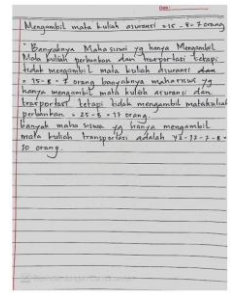 Mengambil mata kuliah asuransi = 15 - 8 = 7 orang
* Banyaknya Mahasiswi yg hanya Mengambil
Mata kuliah perbankan dan trasportasi tetapi
tidak mengambil mata kuliah asuransi dan
= 15 - 8 = 7 orang banyaknya mahasiswi yg
hanya mengambil mata kuliah asuransi dan
trasportasi tetapi tidak mengambil matakuliah
perbankan = 25 - 8 = 17 orang.
banyak maha siswa yg hanya mengambil
mata kuliah transportasi adalah 42 - 17 - 7 - 8 =
10 orang.